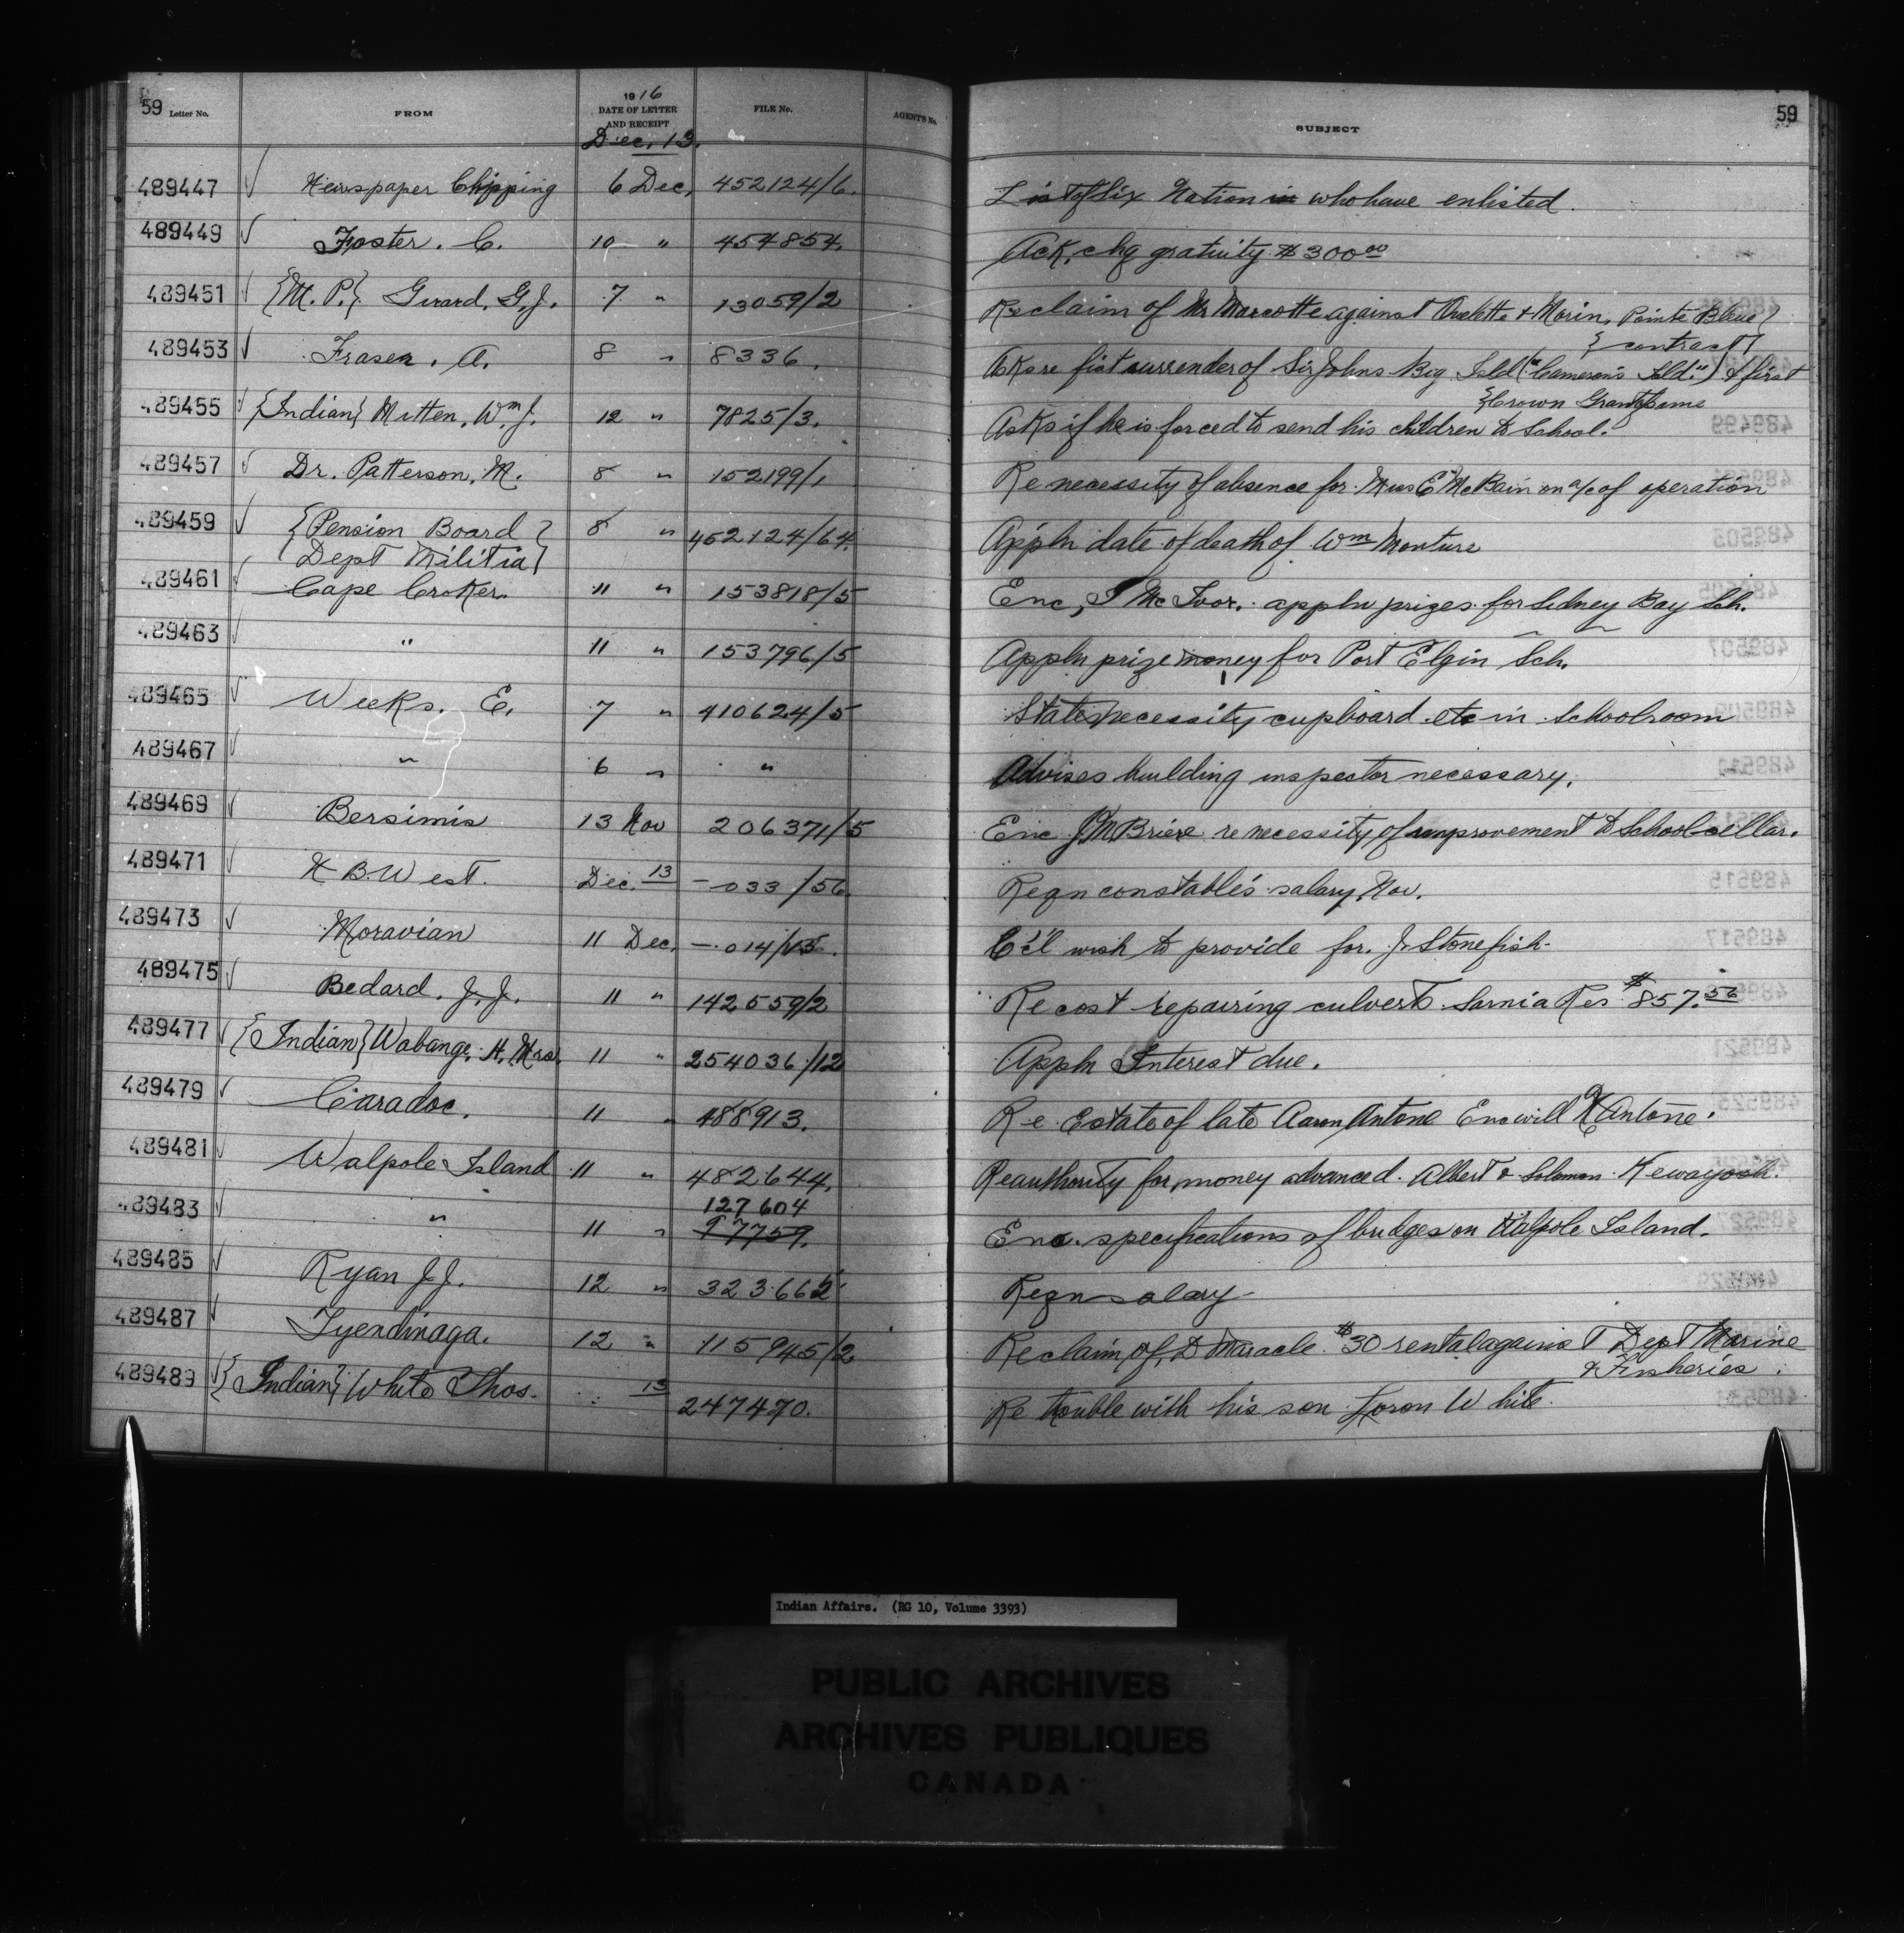 59 Letter No. FROM 1916 DATE OF LETTER AND RECEIPT FILE No. AGENT'S No. SUBJECT 59
Dec. 13.
489447 ✓ Newspaper Clipping 6 Dec. 452124/6. List of Six Nation who have enlisted.
489449 ✓ Foster. C. 10 " 454854. Ack. chq gratuity $300.00
489451 ✓ {M. P.} Girard, G. J. 7 " 13059/2 Re claim of Mr Marcotte against Ouelette & Morin, Pointe Bleue}
{contract}
489453 ✓ Fraser. A. 8 " 8336. Asks re fiat surrender of Sir Johns Big Isld ("Cameron's Isld.") & first
{Crown Grant same
489455 ✓ {Indian} Mitten, Wm. J. 12 " 7825/3. Asks if he is forced to send his children to School.
489457 ✓ Dr. Patterson. M. 8 " 152199/1 Re necessity of absence for Miss C McBain on a/c of operation
489459 ✓ {Pension Board} 8 " 452124/64. Appln date of death of Wm Monture
{Dept Militia}
489461 ✓ Cape Croker. 11 " 153818/5 Enc, I McIvor. appln prizes for Sidney Bay Sch.
489463 ✓ " 11 " 153796/5 Appln prize money for Port Elgin Sch.
489465 ✓ Weeks. E. 7 " 410624/5 States necessity cupboard etc in Schoolroom
489467 ✓ " 6 " " Advises building inspector necessary.
489469 ✓ Bersimis 13 Nov 206371/5 Enc J M Briere re necessity of improvement to School cellar.
489471 ✓ H B West. Dec. 13 – 033/56. Reqn constable's salary Nov.
489473 ✓ Moravian 11 Dec. – 014/ C'c'l wish to provide for J. Stonefish.
489475 ✓ Bedard. J. J. 11 " 142559/2 Re cost repairing culvert. Sarnia Res $857.56
489477 ✓ {Indian} Wabange. H. Mrs. 11 " 254036/12 Appln Interest due.
489479 ✓ Caradoc. 11 " 488913. Re Estate of late Aaron Antone Enc will Antone.
489481 ✓ Walpole Island 11 " 482644. Re authority for money advanced. Albert & Solomon Kewayosh.
127604
489483 ✓ " 11 " 97759. Enc. specifications of bridges on Walpole Island.
489485 ✓ Ryan J. J. 12 " 323.662 Reqn salary
489487 ✓ Tyendinaga. 12 " 115945/2 Re claim of D Maracle $30 rental against Dept Marine
& Fisheries.
489489 ✓ {Indian} White Thos. 13 247470. Re trouble with his son Loron White.
Indian Affairs. (RG 10, Volume 3393)
PUBLIC ARCHIVES
ARCHIVES PUBLIQUES
CANADA